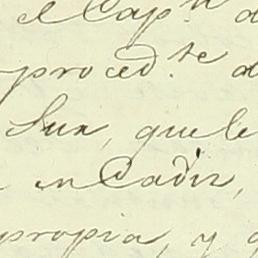 el Cap.n d
proced.te d
Sur, que le
en Cadiz,
propia, y q